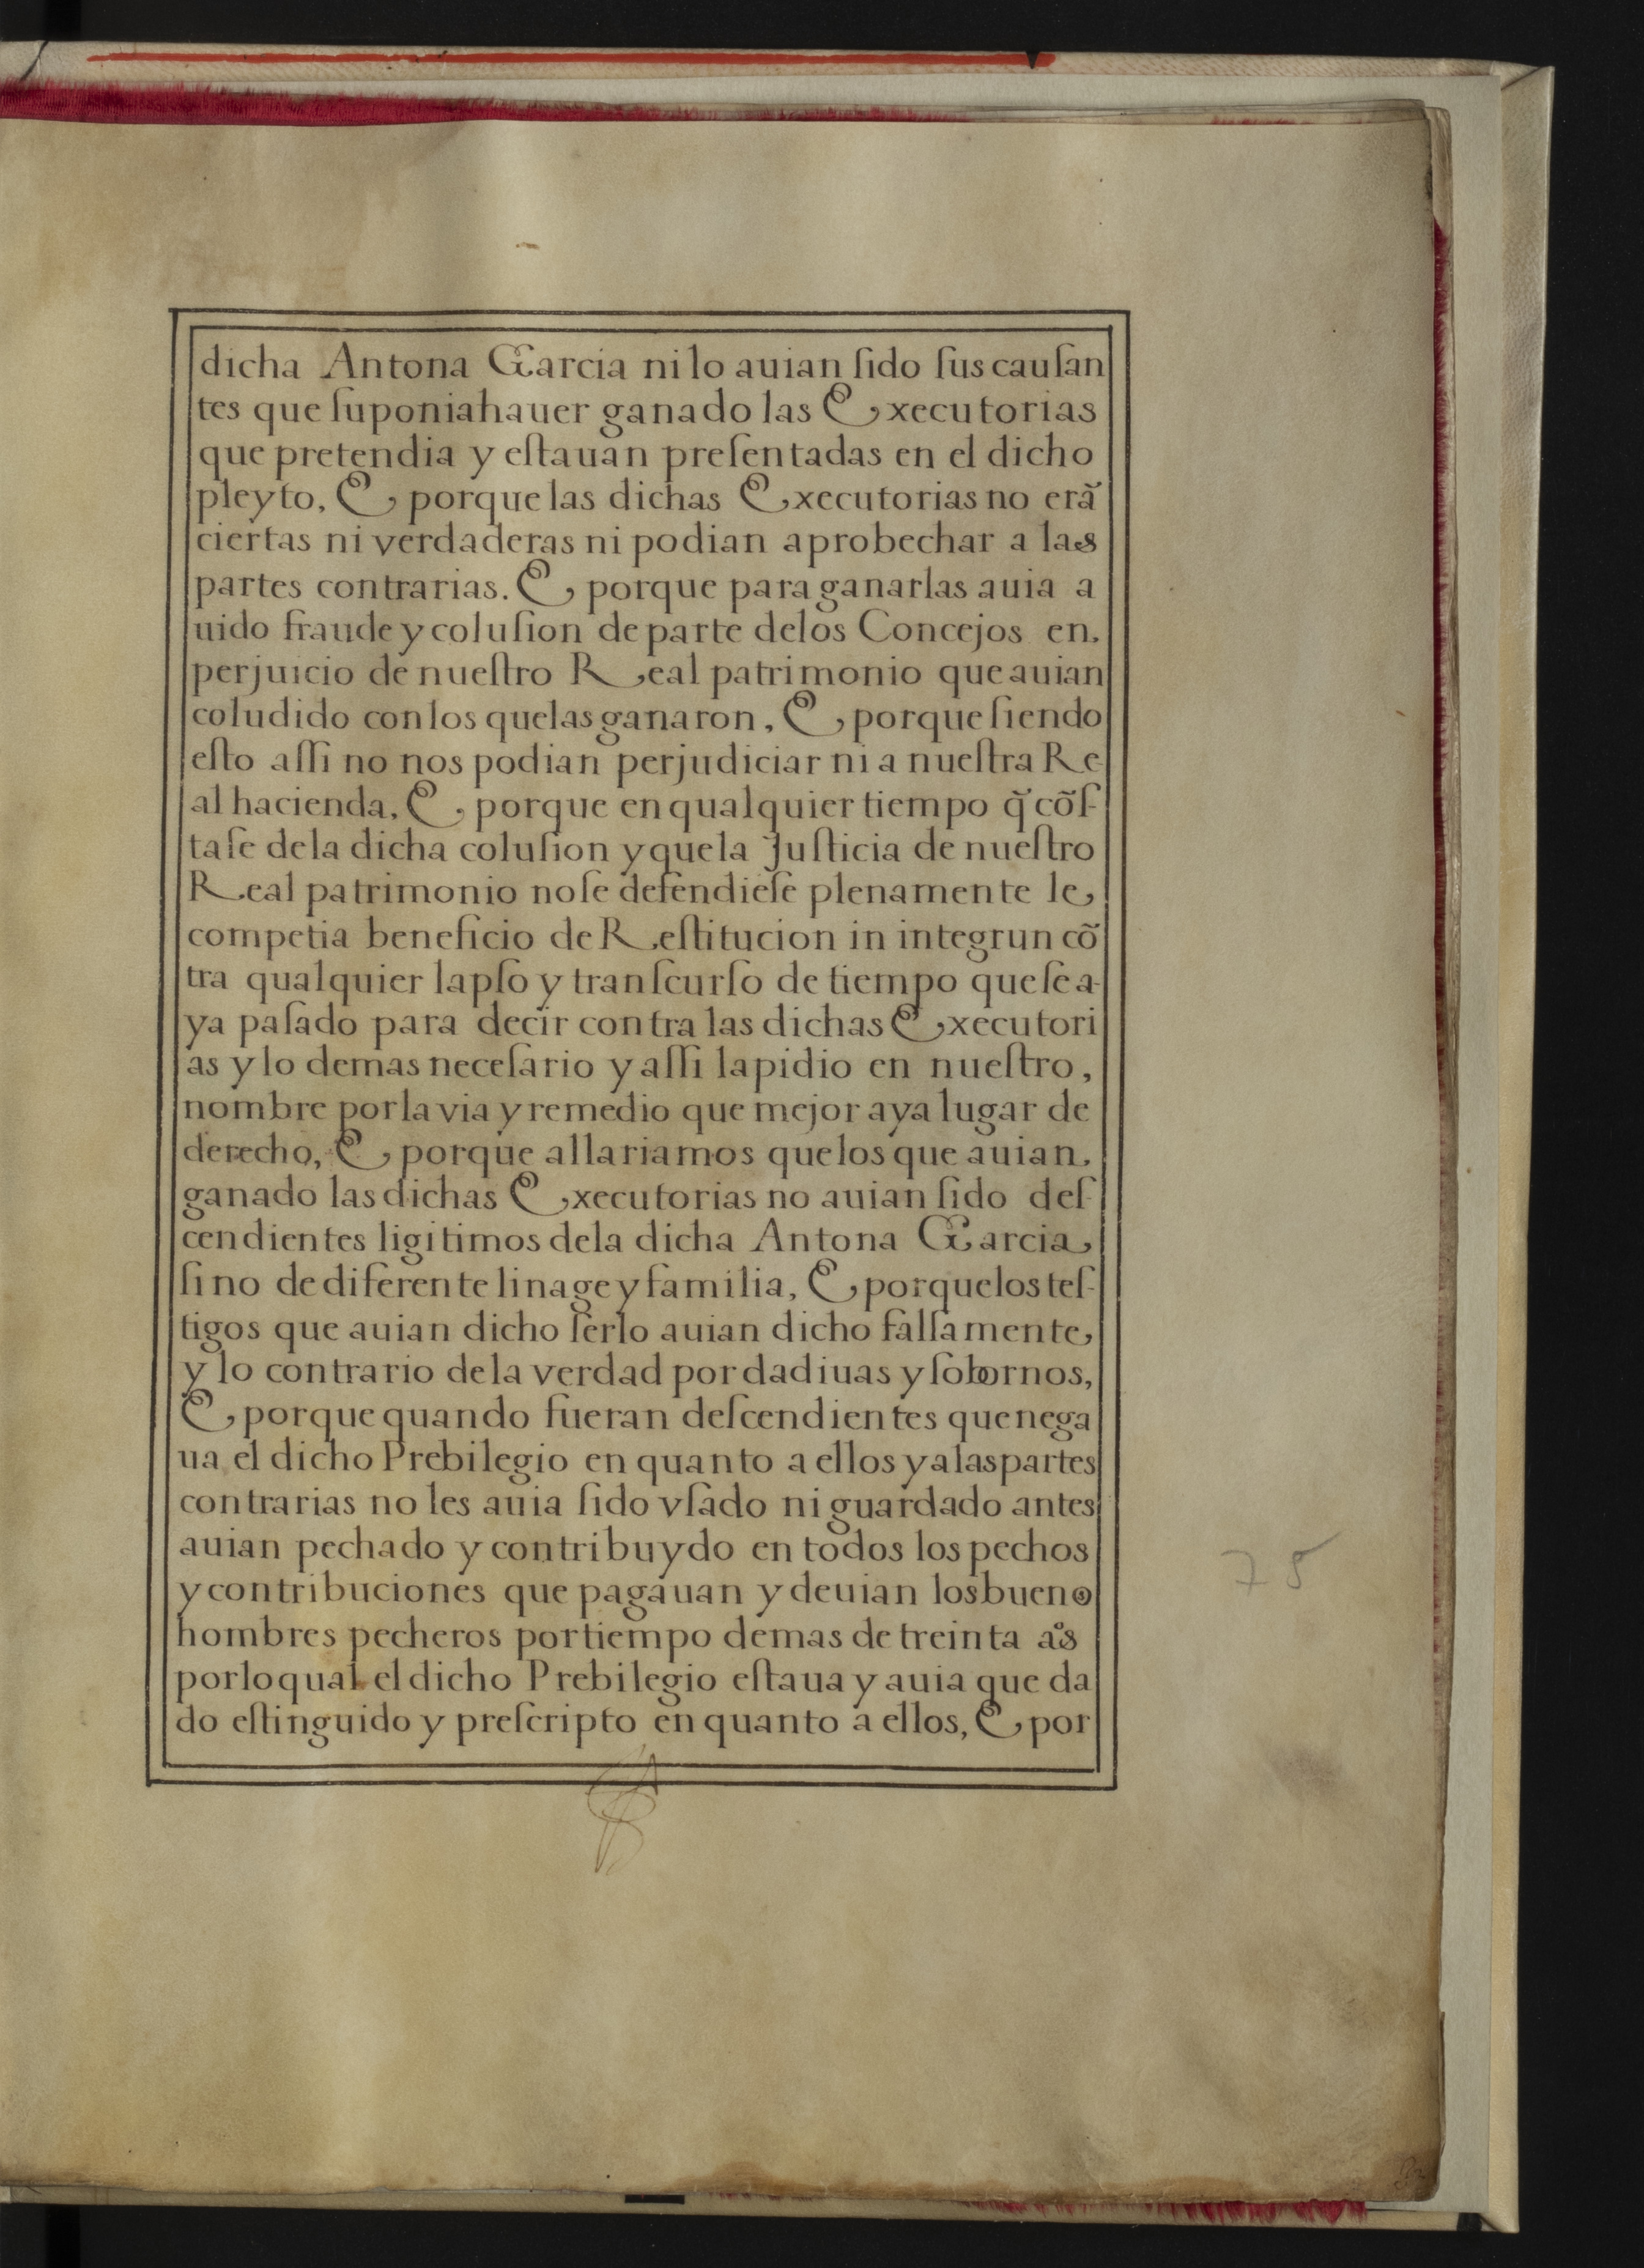 dicha Antona Garcia ni lo auian ſido ſus cauſan
tes que ſuponia hauer ganado las Executorias
que pretendia y eſtauan preſentadas en el dicho
pleyto, E porque las dichas Executorias no erã
ciertas ni verdaderas ni podian aprobechar a las
partes contrarias. E porque para ganarlas auia a
uido fraude y coluſion de parte delos Concejos en,
perjuicio de nueſtro Real patrimonio que auian
coludido con los que las ganaron, E porque ſiendo
eſto aſſi no nos podian perjudiciar ni a nueſtra Re-
al hacienda, E porque en qualquier tiempo q̃ cõſ-
taſe dela dicha coluſion y que la Juſticia de nueſtro
Real patrimonio no ſe defendieſe plenamente le,
competia beneficio de Reſtitucion in integrun cõ
tra qualquier lapſo y tranſcurſo de tiempo que ſe a-
ya paſado para decir contra las dichas Executori
as y lo demas neceſario y aſſi la pidio en nueſtro,
nombre por la via y remedio que mejor aya lugar de
derecho, E porque allariamos que los que auian,
ganado las dichas Executorias no auian ſido deſ-
cendientes ligitimos dela dicha Antona Garcia,
ſino de diferente linage y familia, E porque los teſ-
tigos que auian dicho ſerlo auian dicho falſamente,
y lo contrario dela verdad por dadiuas y ſobornos,
E porque quando fueran deſcendientes que nega
ua el dicho Prebilegio en quanto a ellos y a las partes
contrarias no les auia ſido vſado ni guardado antes
auian pechado y contribuydo en todos los pechos
y contribuciones que pagauan y deuian los bueno
hombres pecheros por tiempo demas de treinta aºs
por lo qual el dicho Prebilegio eſtaua y auia que da
do eſtinguido y preſcripto en quanto a ellos, E por
75